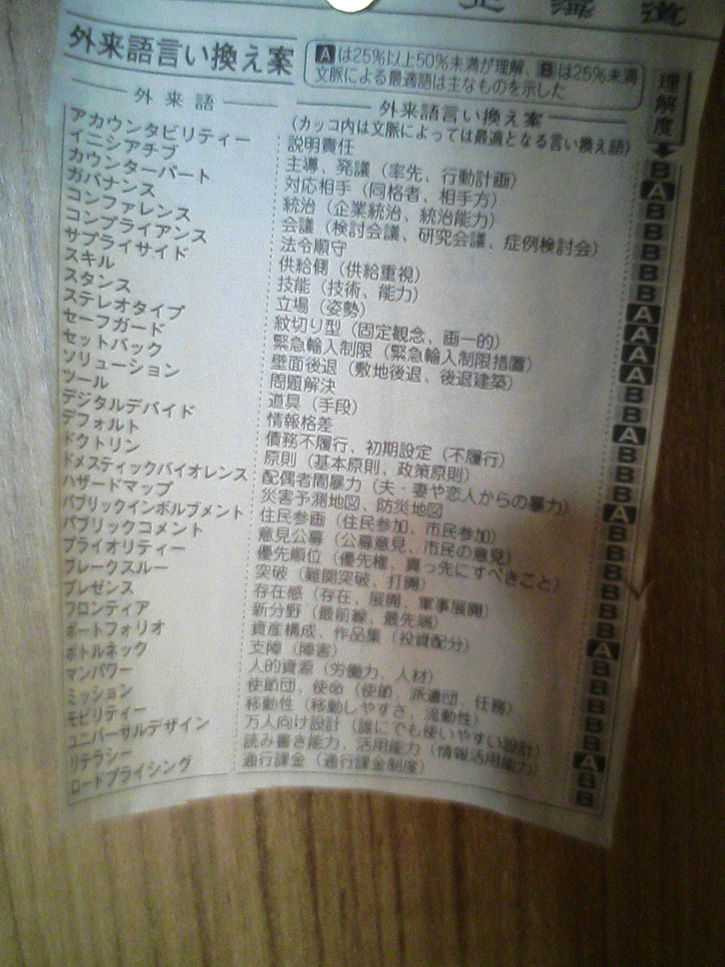 北海道
外来語言い換え案
Aは25%以上50%未満が理解、Bは25%未満
文脈による最適語は主なものを示した
外来語 外来語言い換え案 理解度
(カッコ内は文脈によっては最適となる言い換え語)
アカウンタビリティー 説明責任 B
イニシアチブ 主導、発議(率先、行動計画) A
カウンターパート 対応相手(同格者、相手方) B
ガバナンス 統治(企業統治、統治能力) B
コンファレンス 会議(検討会議、研究会議、症例検討会) B
コンプライアンス 法令順守 B
サプライサイド 供給側(供給重視) B
スキル 技能(技術、能力) A
スタンス 立場(姿勢) A
ステレオタイプ 紋切り型(固定観念、画一的) A
セーフガード 緊急輸入制限(緊急輸入制限措置) A
セットバック 壁面後退(敷地後退、後退建築) B
ソリューション 問題解決 B
ツール 道具(手段) A
デジタルデバイド 情報格差 B
デフォルト 債務不履行、初期設定(不履行) B
ドクトリン 原則(基本原則、政策原則) B
ドメスティックバイオレンス 配偶者間暴力(夫・妻や恋人からの暴力) A
ハザードマップ 災害予測地図、防災地図 B
パブリックインボルブメント 住民参画(住民参加、市民参加) B
パブリックコメント 意見公募(公募意見、市民の意見) B
プライオリティー 優先順位(優先権、真っ先にすべきこと) B
ブレークスルー 突破(難関突破、打開) B
プレゼンス 存在感(存在、展開、軍事展開) B
フロンティア 新分野(最前線、最先端) A
ポートフォリオ 資産構成、作品集(投資配分) B
ボトルネック 支障(障害) B
マンパワー 人的資源(労働力、人材) B
ミッション 使節団、使命(使節、派遣団、任務) B
モビリティー 移動性(移動しやすさ、流動性) B
ユニバーサルデザイン 万人向け設計(誰にでも使いやすい設計) A
リテラシー 読み書き能力、活用能力(情報活用能力) B
ロードプライシング 通行課金(通行課金制度) B